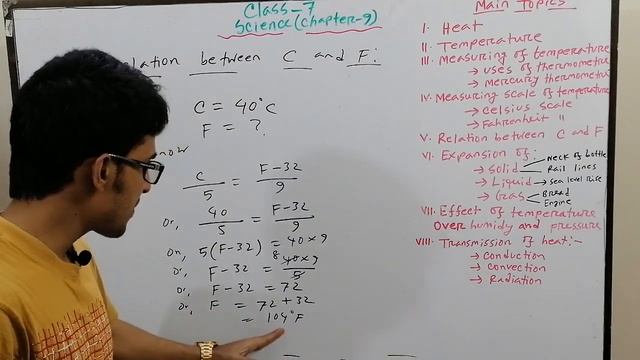 Class-7
Science (Chapter-9)
Relation between C and F:
C = 40°C
F = ?
C/5 = F-32/9
Or, 40/5 = F-32/9
Or, 5(F-32) = 40×9
Or, F-32 = 8 40×9/5
Or, F-32 = 72
Or, F = 72+32
= 104°F
Main Topics
I. Heat
II. Temperature
III. Measuring of temperature
→ uses of thermometre
→ Mercury thermometre
IV. Measuring scale of temperature
→ Celsius scale
→ Fahrenheit "
V. Relation between C and F
VI. Expansion of:
→ Solid Neck of bottle
Rail lines
→ Liquid → Sea level rise
→ Gas Bread
Engine
VII. Effect of temperature
Over humidy and pressure
VIII. Transmission of heat:-
→ Conduction
→ Convection
→ Radiation